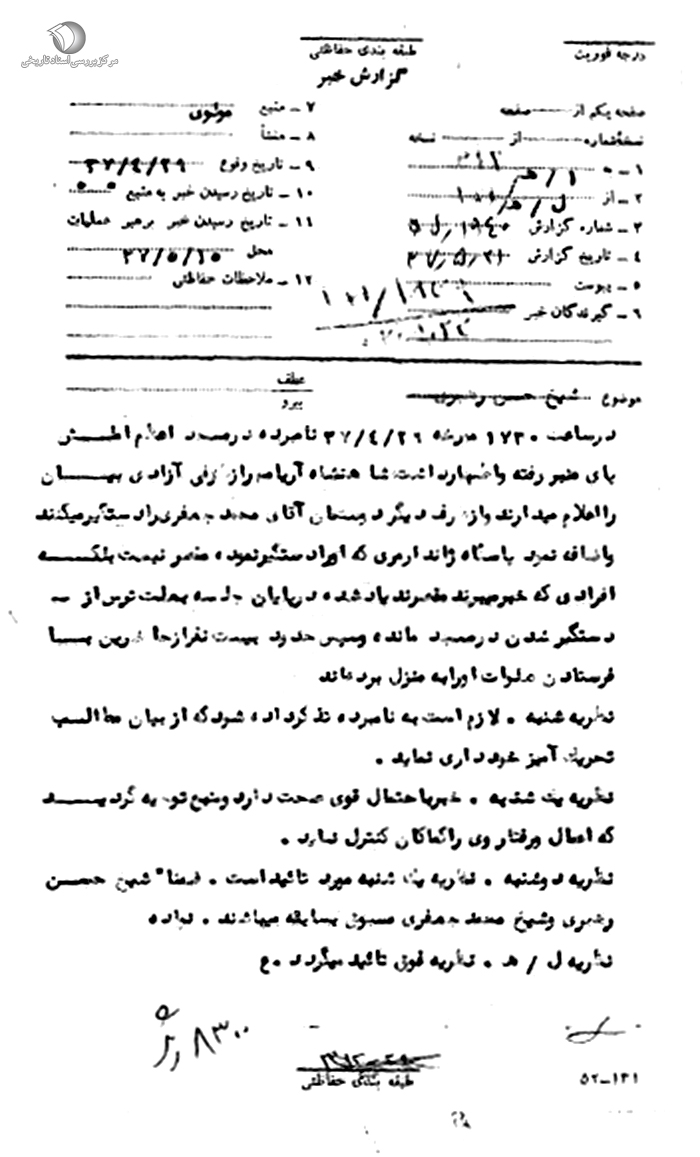 مرکز بررسی اسناد تاریخی
درجه فوریت
طبقه بندی حفاظتی
گزارش خبر
صفحه یکم از صفحه
نسخه شماره از نسخه
۱ ـ به ۳۱۲
۲ ـ از
۳ ـ شماره گزارش
۴ ـ تاریخ گزارش ۳۷/۵/۳۱
۵ ـ پیوست
۶ ـ گیرندگان خبر
۷ ـ منبع مولوی
۸ ـ منشأ
۹ ـ تاریخ وقوع ۳۷/۴/۲۹
۱۰ ـ تاریخ رسیدن خبر به منبع
۱۱ ـ تاریخ رسیدن خبر برهبر عملیات
محل ۳۷/۵/۲۵
۱۲ ـ ملاحظات حفاظتی
موضوع شیخ حسن رهبری
عطف
پیرو
درساعت ۱۷۳۰ مورخه ۳۷/۴/۲۹ نامبرده درمسجد اعظم
بالای منبر رفته واظهارداشت شاهنشاه آریامهراز طرفی آزادی بیان
رااعلام میدارند واز طرف دیگر دوستان آقای محمد جعفری رادستگیرمیکنند
واضافه نمود پاسگاه ژاندارمری که اورادستگیرنموده مقصر نیست بلکه
افرادی که خبرمیبرند مقصرند یادشده درپایان جلسه بعلت ترس از ـ
دستگیر شدن درمسجد مانده وسپس حدود بیست نفرازحاضرین با
فرستادن صلوات اورابه منزل برده اند
نظریه شنبه . لازم است به نامبرده تذکرداده شودکه از بیان مطالب
تحریک آمیز خودداری نماید .
نظریه یک شنبه . خبرباحتمال قوی صحت دارد ومنبع توجیه گردید
که اعمال ورفتار وی راکماکان کنترل نماید .
نظریه دوشنبه . نظریه یک شنبه مورد تائیداست . ضمنا" شیخ حسن
رهبری وشیخ محمد جعفری مسبوق بسابقه میباشند .
نظریه ل / ه . نظریه فوق تائید میگردد . ع
۸۳۰۰
طبقه بندی حفاظتی
۵۲-۱۳۱